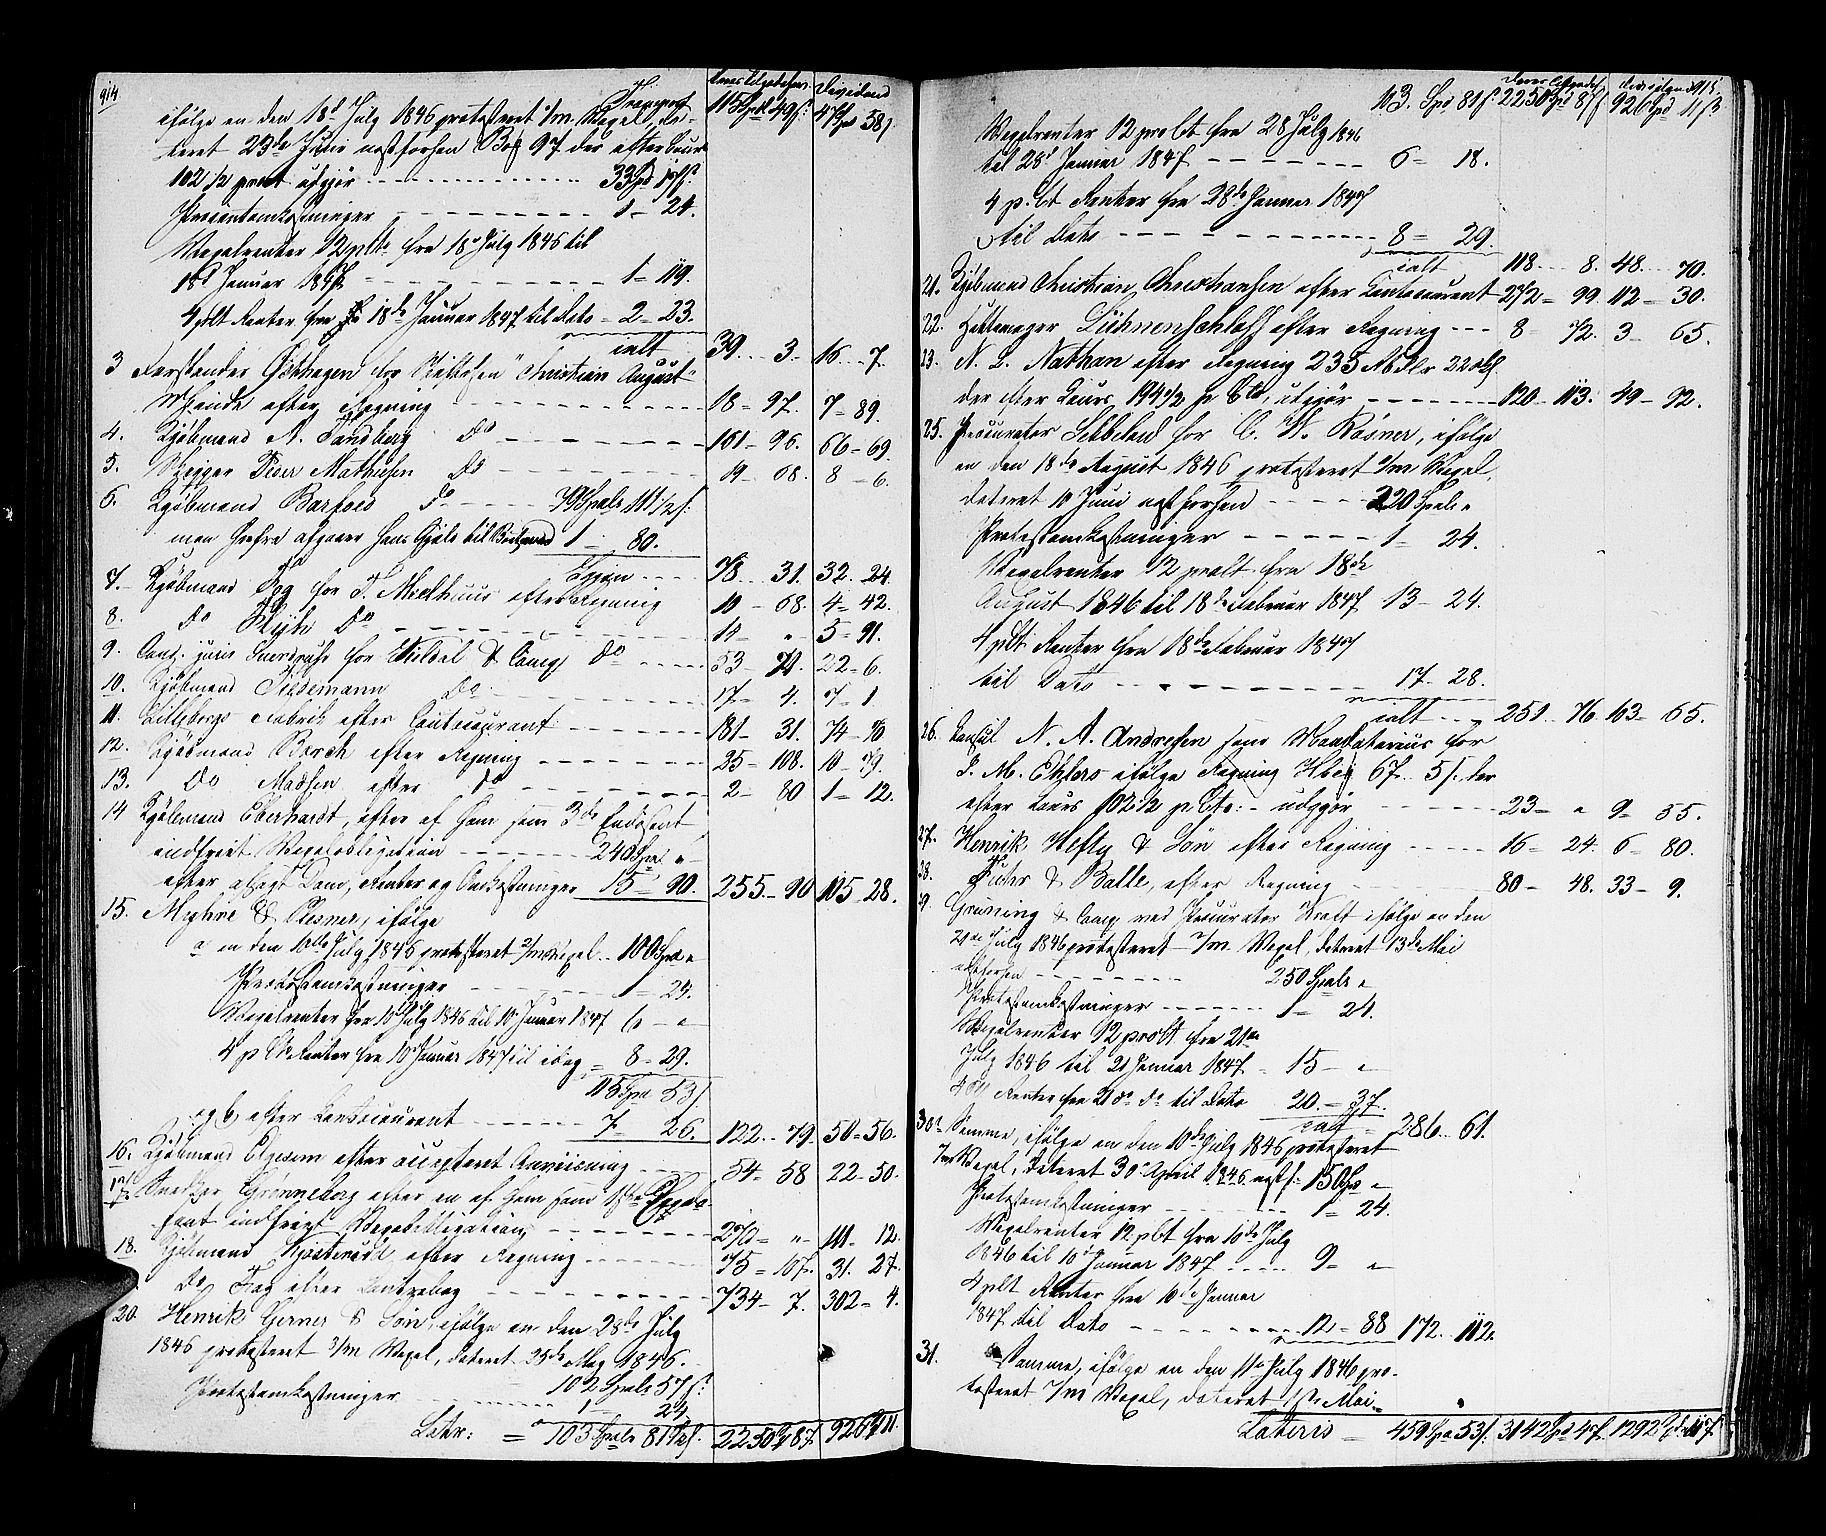 914
Deres Tilgodehav. Dividend
Transport 115 Spd 49 s. 47 Spd 58 s
ifølge en den 18d July 1846 protesteret 1/m Vexel, da-
teret 23de Juni næstforhen Bco 97 der efter Cours
102 1/2 procent udgjør - - - 33 Spd
Protestomkostninger - - - 1 - 24.
Vexelrenter 12 pCto fra 18d July 1846 til
18d Januar 1847 - - - 1 - 119.
4 pCt Renter fra 18de Januar 1847 til Dato - 2 - 23.
ialt 39 - 3 - 16 - 7.
3 Forstander for "Christian August"
efter Regning - - - 18 - 97. 7 - 89.
4. Kjøbmand A. Sandberg Do - - - 161 - 96. 66 - 69.
5. Skipper Peter Mathiesen Do - - - 19 - 68. 8 - 6.
6. Kjøbmand Barfoed Do - - - 79 Spdlr 111 1/2 s.
men herfra afgaaer hans Gjæld til Boet med 1 - 80.
Igjen - - - 78 - 31. 32 - 24.
7. Kjøbmand Fog for efter Regning 10 - 68. 4 - 42.
8. Do Do - - - 14 - " - 5 - 91.
9. Cand. juris for & Comp Do - - - 53 - 74. 22 - 6.
10. Kjøbmand Tiedemann Do - - - 17 - 4. 7 - 1
11. Lilleborgs Fabrik efter Contocourant - - - 181 - 31. 74 - 76
12. Kjøbmand Borch efter Regning - - - 25 - 108. 10 - 79.
13. Do Madsen efter Do - - - 2 - 80 1 - 12.
14 Kjøbmand Eberhardt, efter af ham som 3de Endosent
indfriet Vexelobligation - - - 240 Spd "
efter afsagt Dom, Renter og Omkostninger 15 - 90. 255 - 90 105 - 28.
15. Myhre & Plesner, ifølge
a en den 10de July 1846 protesteret 2/m Vexel - 100 Spd "
Protestomkostninger - - - 1 - 24.
Vexelrenter fra 10d July 1846 til 10 Januar 1847 6 - "
4 p Ct Renter fra 10 Januar 1847 til idag - 8 - 29.
115 Spd 53 s.
og b, efter Contocourant - - - 7 - 26. 122 - 79. 50 - 56.
16. Kjøbmand efter accepteret Anviisning - - - 54 - 58 22 - 50.
17. Snedker Grønneberg efter en af ham som 1ste
indfriet Vexelobligation, - - - 270 - " - 111 - 12.
18. Kjøbmand efter Regning - - - 75 - 107. 31. 27.
Do Fog efter Contrabog - - - 734 - 7. 302 - 4.
20. Henrik Gerner & Søn, ifølge en den 28de July
1846 protesteret 3/m Vexel, dateret 25de May 1846.
102 Spdlr 57 s.
Protestomkostninger - - - 1 - 24
Latr: = 103 Spdlr 81 s. 2250 - 87. 926 - 11.
Deres Tilgodeh. Dividend 915.
103. Spd 81 s. 2250 Spd 87 s 926 Spd 11 s
Vexelrenter 12 pro Ct fra 28 July 1846
til 28d Januar 1847 - - - 6 - 18.
4 p. Ct Renter fra 28de Januar 1847
til Dato - - - 8 - 29.
ialt 118 - 8. 48 - 70.
21. Kjøbmand Christian Christiansen efter Contocourant 272 - 99. 112 - 30.
22. Hattemager Lühnenschloss efter Regning - - - 8 - 72. 3 - 65.
23. N. L. Nathan efter Regning 235 Rbdlr 22 s
der efter Cours 194 1/2 pr Cto, udgjør - - - 120 - 113. 49 - 92.
25. Procurator for C. W. Rosner, ifølge
en den 18de August 1846 protesteret 2/m Vexel,
dateret 10 Juni næstforhen - - - 220 Spdlr "
Protestomkostninger - - - 1 - 24.
Vexelrenter 12 procCt fra 18de
August 1846 til 18de Februar 1847 13 - 24.
4 pCt Renter fra 18de Februar 1847
til Dato - - - 17 - 28.
ialt - 251 - 76. 103 - 65.
26. Consul N. A. Andresen som Mandatarius for
J. M. Ehlers ifølge Regning Hbco 67. 5 s. der
efter Cours 102 1/2 p Cto: - udgjør - - - 23 - " 9 - 55.
27. Henrik Hefty & Søn efter Regning - - - 16 - 24. 6 - 80.
28. Fuhr & Balle, efter Regning - - - 80 - 48. 33 - 9.
29. Grüning & Comp ved Procurator Kraft ifølge en den
21de July 1846 protesteret 2/m. Vexel, dateret 13de Mai
næstforhen - - - 250 Spdlr "
Protestomkostninger - - - 1 - 24.
Vexelrenter 12 pro Ct fra 21de
July 1846 til 21 Januar 1847 - 15 - "
4 pCt Renter fra 21de do til Dato 20. - 37.
ialt - 286 - 61.
30. Samme, ifølge en den 10de July 1846 protesteret
Vexel, dateret 30te April 1846 næstf: 150 Spd "
Protestomkostninger - - - 1 - 24.
Vexelrenter 12 pCt fra 10de July
1846 til 10de Januar 1847 - - - 9 - "
4 pCt Renter fra 10de Januar
1847 til Dato - - - 12 - 88 172 - 112.
31. Samme, ifølge en den 11te July 1846 pro-
testeret Vexel, dateret 1ste Mai -
Lateris - 459 Spd 53 s. 3142 Spd 47. 1292 Spd 117.